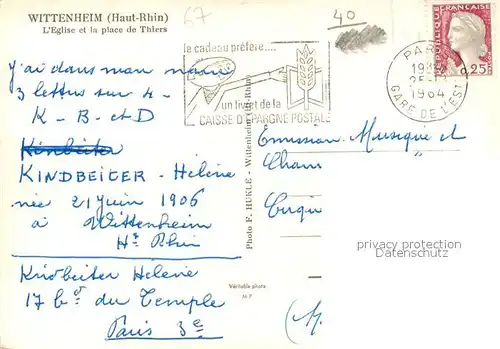 WITTENHEIM (Haut-Rhin)
L'Eglise et la place de Thiers
67
40
le cadeau préféré....
un livret de la
CAISSE D'EPARGNE POSTALE
FRANÇAISE
0,25
PARIS
1964
GARE DE L'EST
J'ai dans mon nom
3 lettres sur 4 -
K - B - et D
Kinbeiter
KINDBEITER - Helene
née 21 juin 1906
à Wittenheim
Ht Rhin
Kindbeiter Helene
17 bd du Temple
Paris 3e
Photo F. HUKLE - Wittenheim (Ht-Rhin)
Véritable photo
M P
Emission Musique et
Cham
Cirque
(M.
privacy protection
Datenschutz